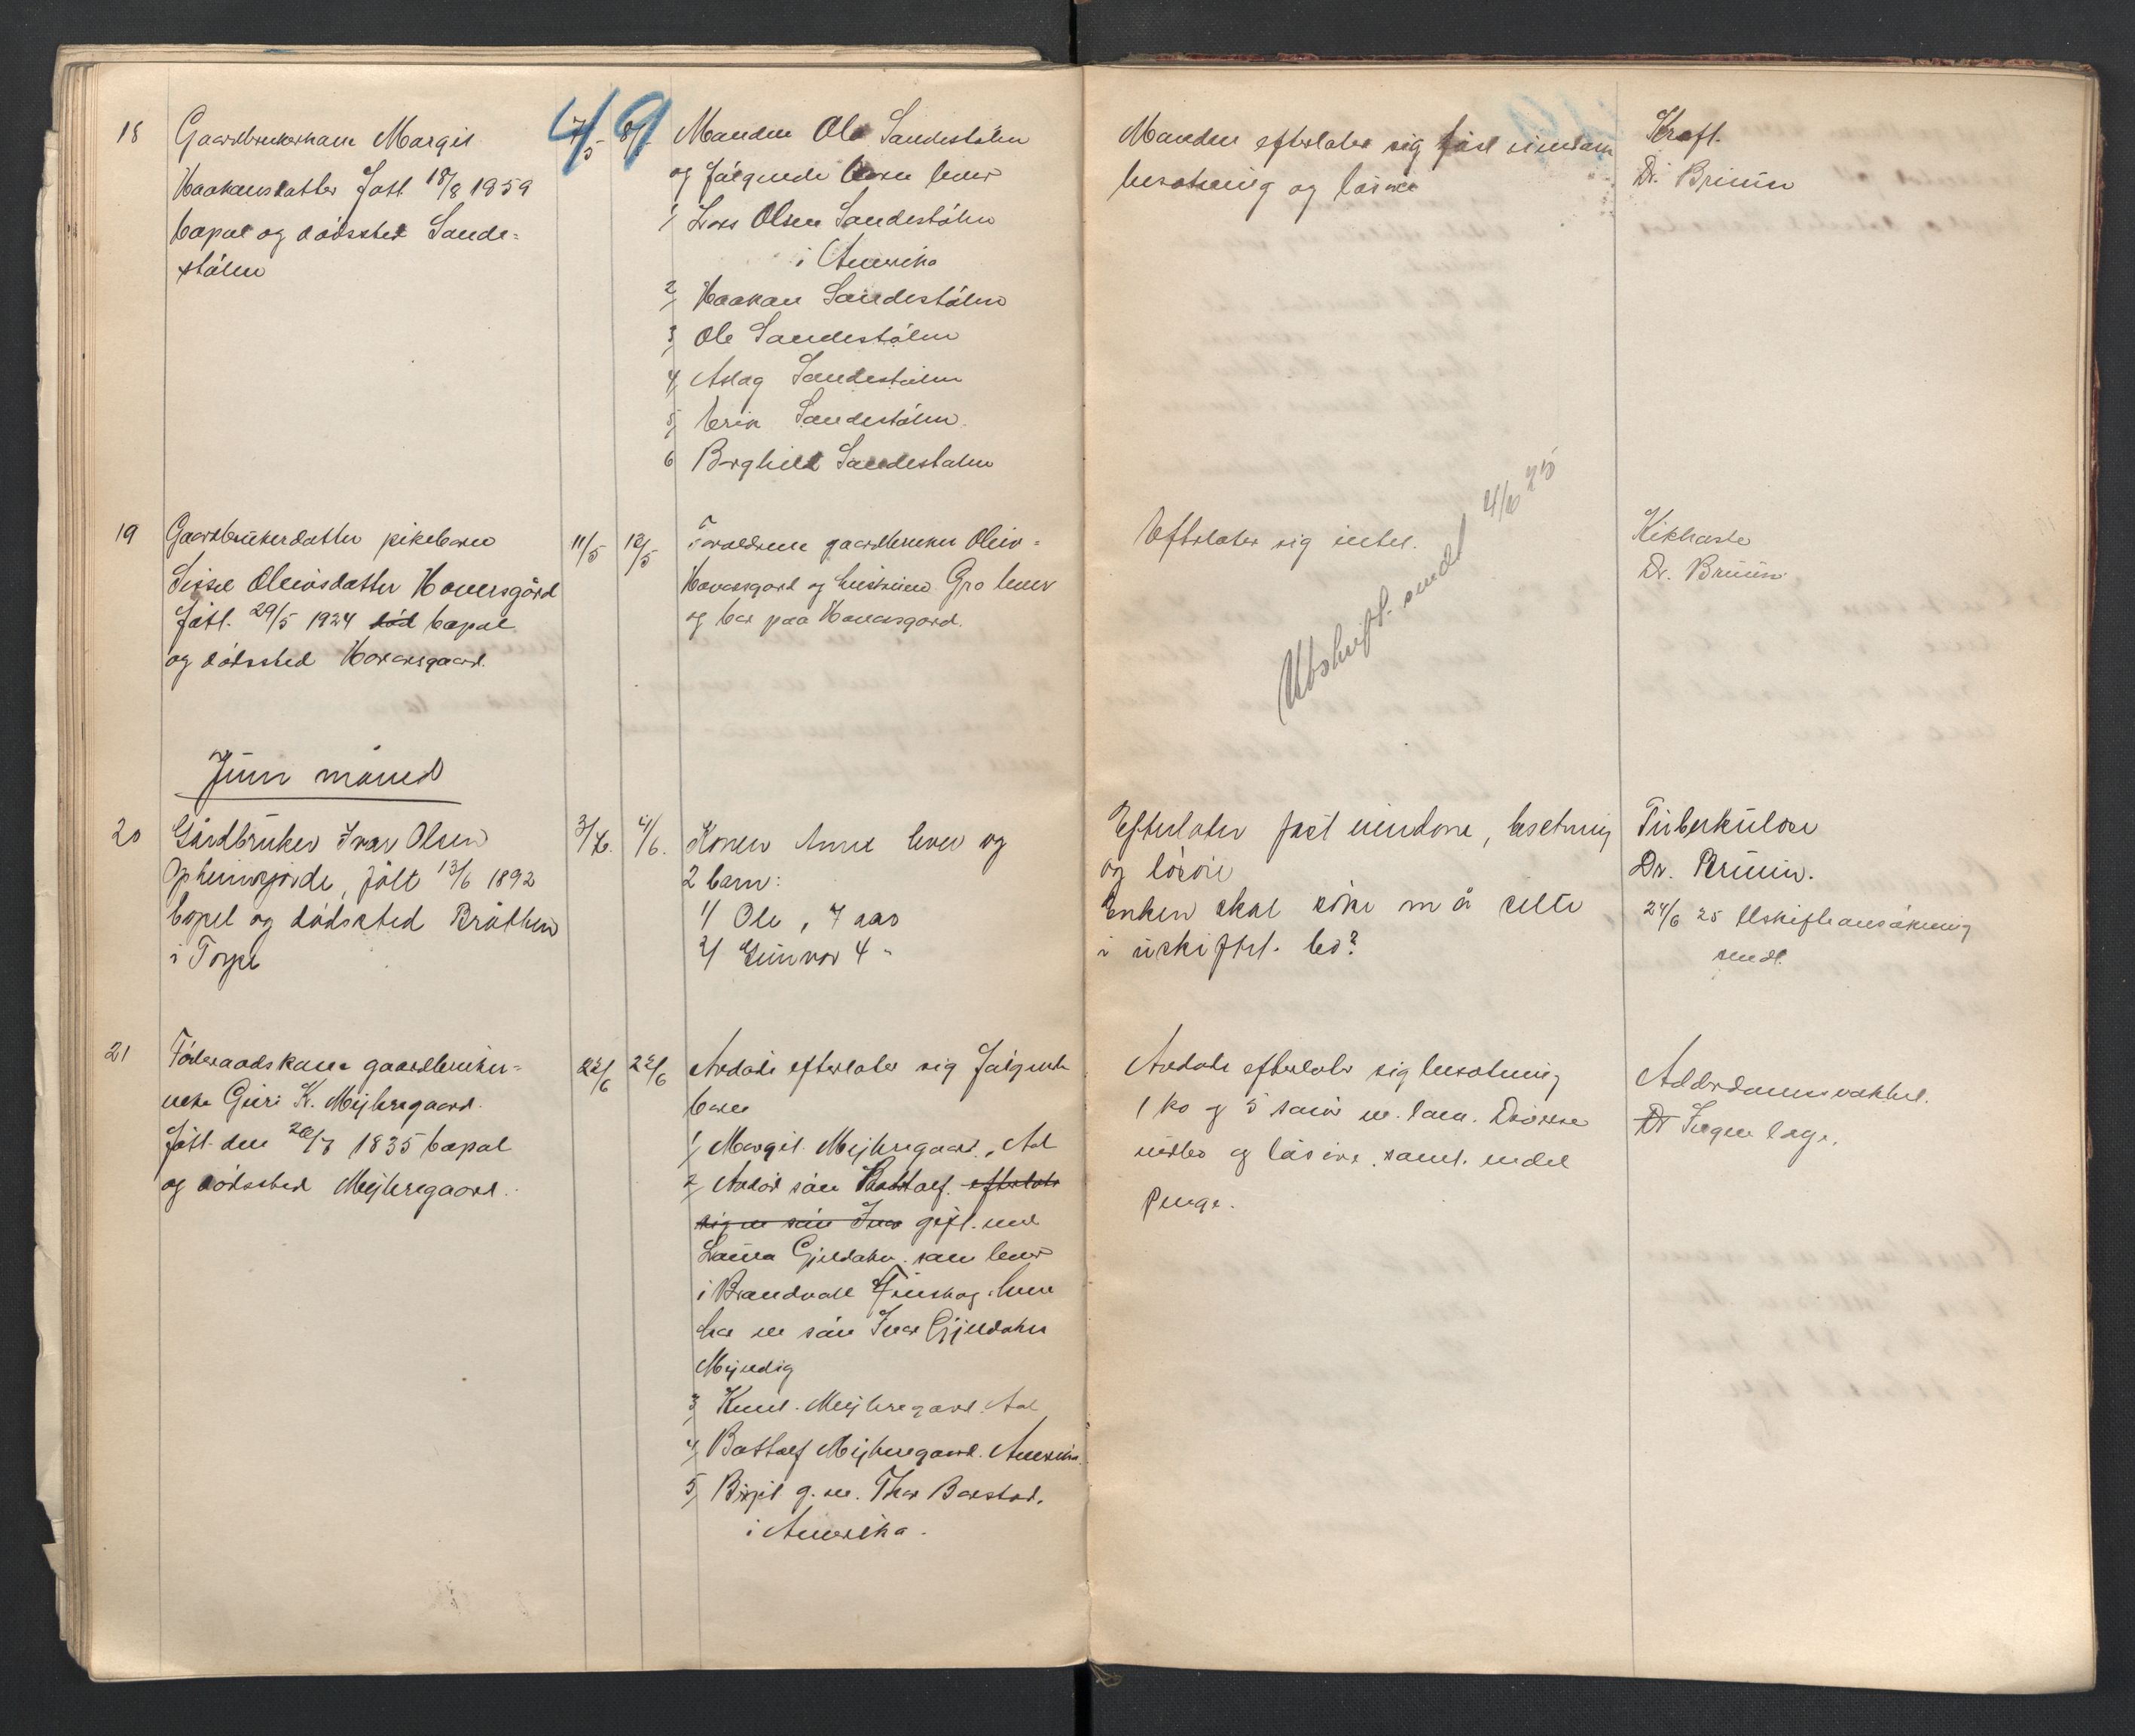 49
18
Gaardbrukerkane Margit
Haakansdatter föt 18/8 1859
bopæl og dödssted Sande=
stölen
7/5
8/5
Manden Ole Sandestölen
og fölgende barn lever
1 Lars Olsen Sandestölen
i Amerika
2 Haakan Sandestölen
3 Ole Sandestölen
4 Aslag Sandestölen
5 Erik Sandestölen
6 Borghild Sandestölen
Manden efterlater sig fast eiendom
besætning og lösöre
Kræft.
Dr. Bruun
19
Gaardbrukerdatter pikebarn
Sissel Oleivsdatter Hoversgård
föt. 29/5 1924 död bopæl
og dödssted Hoversgaard.
11/5
12/5
Foræeldrene gaardbruker Oleiv
Hoversgard og hustruen Gro lever
og bor paa Hoversgard.
Efterlater sig intet.
Utskrift sendt 4/6 25
Kikhoste
Dr. Bruun
Juni måned
20
Gårdbruker Ivar Olsen
Opheimsjorde, fött 13/6 1892
bopel og dödssted Bråthen
i Torpe
3/6.
4/6.
Konen Anne lever og
2 barn:
1/ Ole, 7 aar
2/ Gunvor 4 "
Efterlater fast eiendom, besetning
og lösöre
Enken skal söke om å sitte
i uskiftet bo?
Tuberkulose
Dr. Bruun.
24/6 25 Uskifteansökning
sendt.
21
Föderaadskane gaardbruker=
enke Guri K. Mejlersgaard.
föt den 20/7 1835 bopæl
og dödssted Mejlersgaard.
22/6
22/6
Avdöde efterlater sig fölgende
barn
1/ Margit Mejlersgaard, Aal
2/ Avdöd sön Bottolf. efterlot
sig en sön Ivar gift. med
Laura Gjeldaker som lever
i Brandvall Finskog. hun
har en sön Ivar Gjeldaker
Myndig
3 Knut Mejlersgaard. Aal
4/ Bottolf Mejlersgaard. Amerika.
5/ Birgit g. m. Thor Barstad.
i Amerika.
Avdöde efterlater sig besætning
1 ko og 5 sauer m. lam. Diverse
indbo og lösöre. samt. endel
Penge.
Alderdomssvakhet.
Dr Ingen læge.